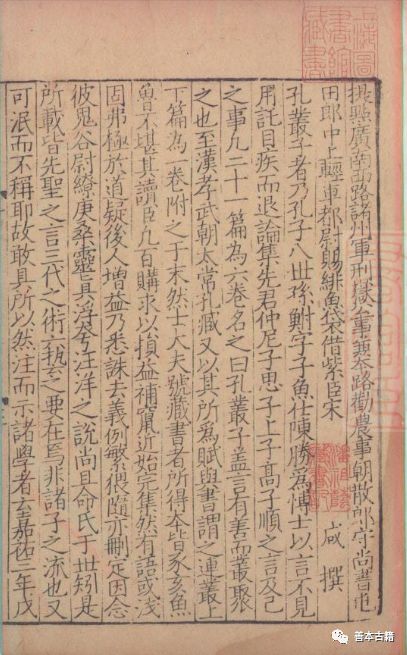 提點廣南西路諸州軍刑獄公事兼本路勸農事朝散郎守尚書屯
田郎中上輕車都尉賜緋魚袋借紫臣宋 咸 撰
孔叢子者乃孔子八世孫鮒字子魚仕陳勝為博士以言不見
用託目疾而退論集先君仲尼子思子上子高子順之言及己
之事凡二十一篇為六卷名之曰孔叢子蓋言有善而叢聚
之也至漢孝武朝太常孔臧又以其所為賦與書謂之連叢上
下篇為一卷附之于末然士大夫號藏書者所得本皆豕亥魚
魯不堪其讀臣凡百購求以損益補竄近始完集然有語或淺
固弗極於道疑後人增益乃悉誅去義例繁猥隨亦刪定因念
彼鬼谷尉繚庚桑靈真浮夸汪洋之說尚且命氏于世矧是
所載皆先聖之言三代之術六藝之要在焉非諸子之流也又
可泯而不稱耶故敢具所以然注而示諸學者云嘉祐三年戊
善本古籍